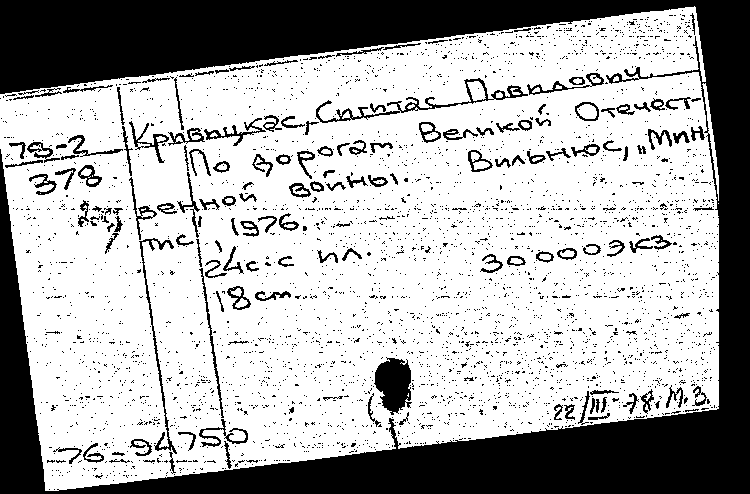 Кривицкас, Сигитас Повилович.
78-2
378
По дорогам Великой Отечест-
венной войны. Вильнюс, „Мин-
тис", 1976.
24с. с ил. 30 000 экз.
18 см.
22/III-78. М.З.
76-94750